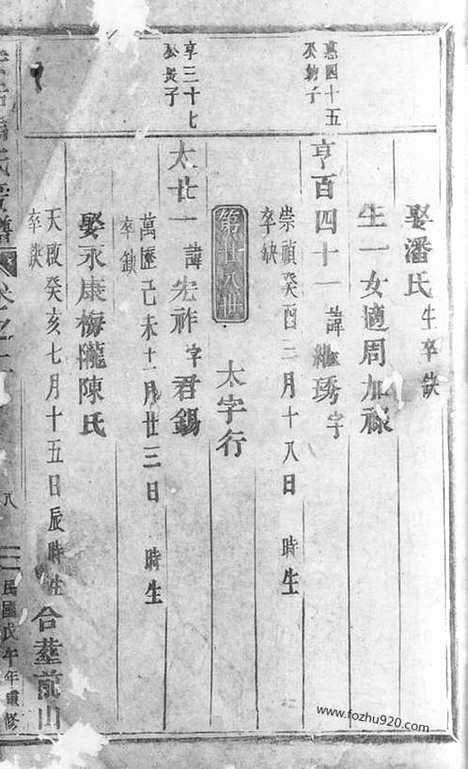 娶潘氏生卒缺
生一女適周加祿
惠四十五
公幼子
亨百四十一諱繼琇字
崇禎癸酉三月十八日 時生
卒缺
第廿八世 太字行
亨三十七
公長子
太廿一諱宏祚字君錫
萬歷己未十二月廿三日 時生
卒缺
娶永康梅隴陳氏
天啟癸亥七月十五日辰時生
卒缺
合塟前山
八
民國戊午年續修
www.fozhu920.com